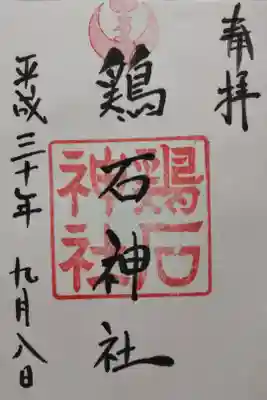 奉拝
鶏石神社
鶏石神社
平成三十年九月八日